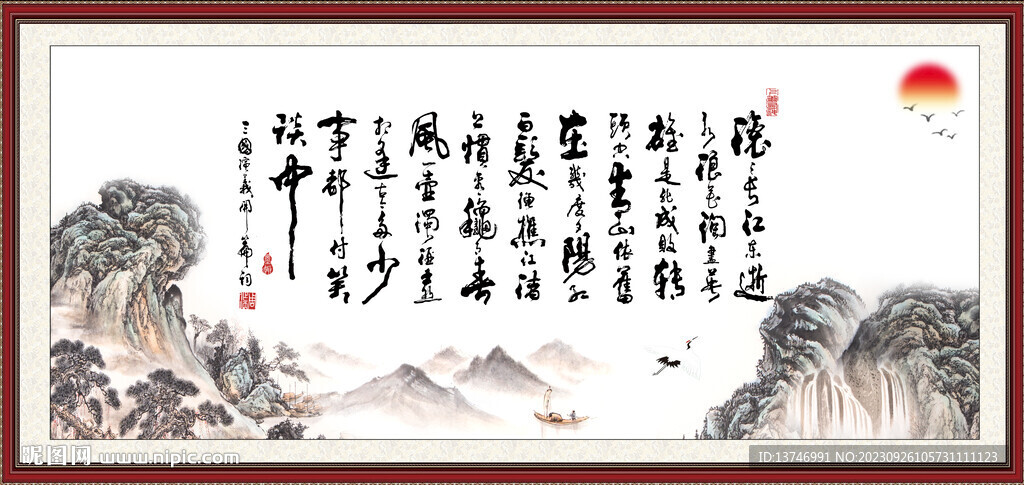 滚滚長江东逝
水浪花淘盡英
雄是非成敗转
頭空青山依舊
在幾度夕陽红
白髮渔樵江渚
上慣看秋月春
風一壶濁酒喜
相逢古今多少
事都付笑
談中
三國演義開篇词
昵图网 www.nipic.com
ID:13746991 NO:20230926105731111123